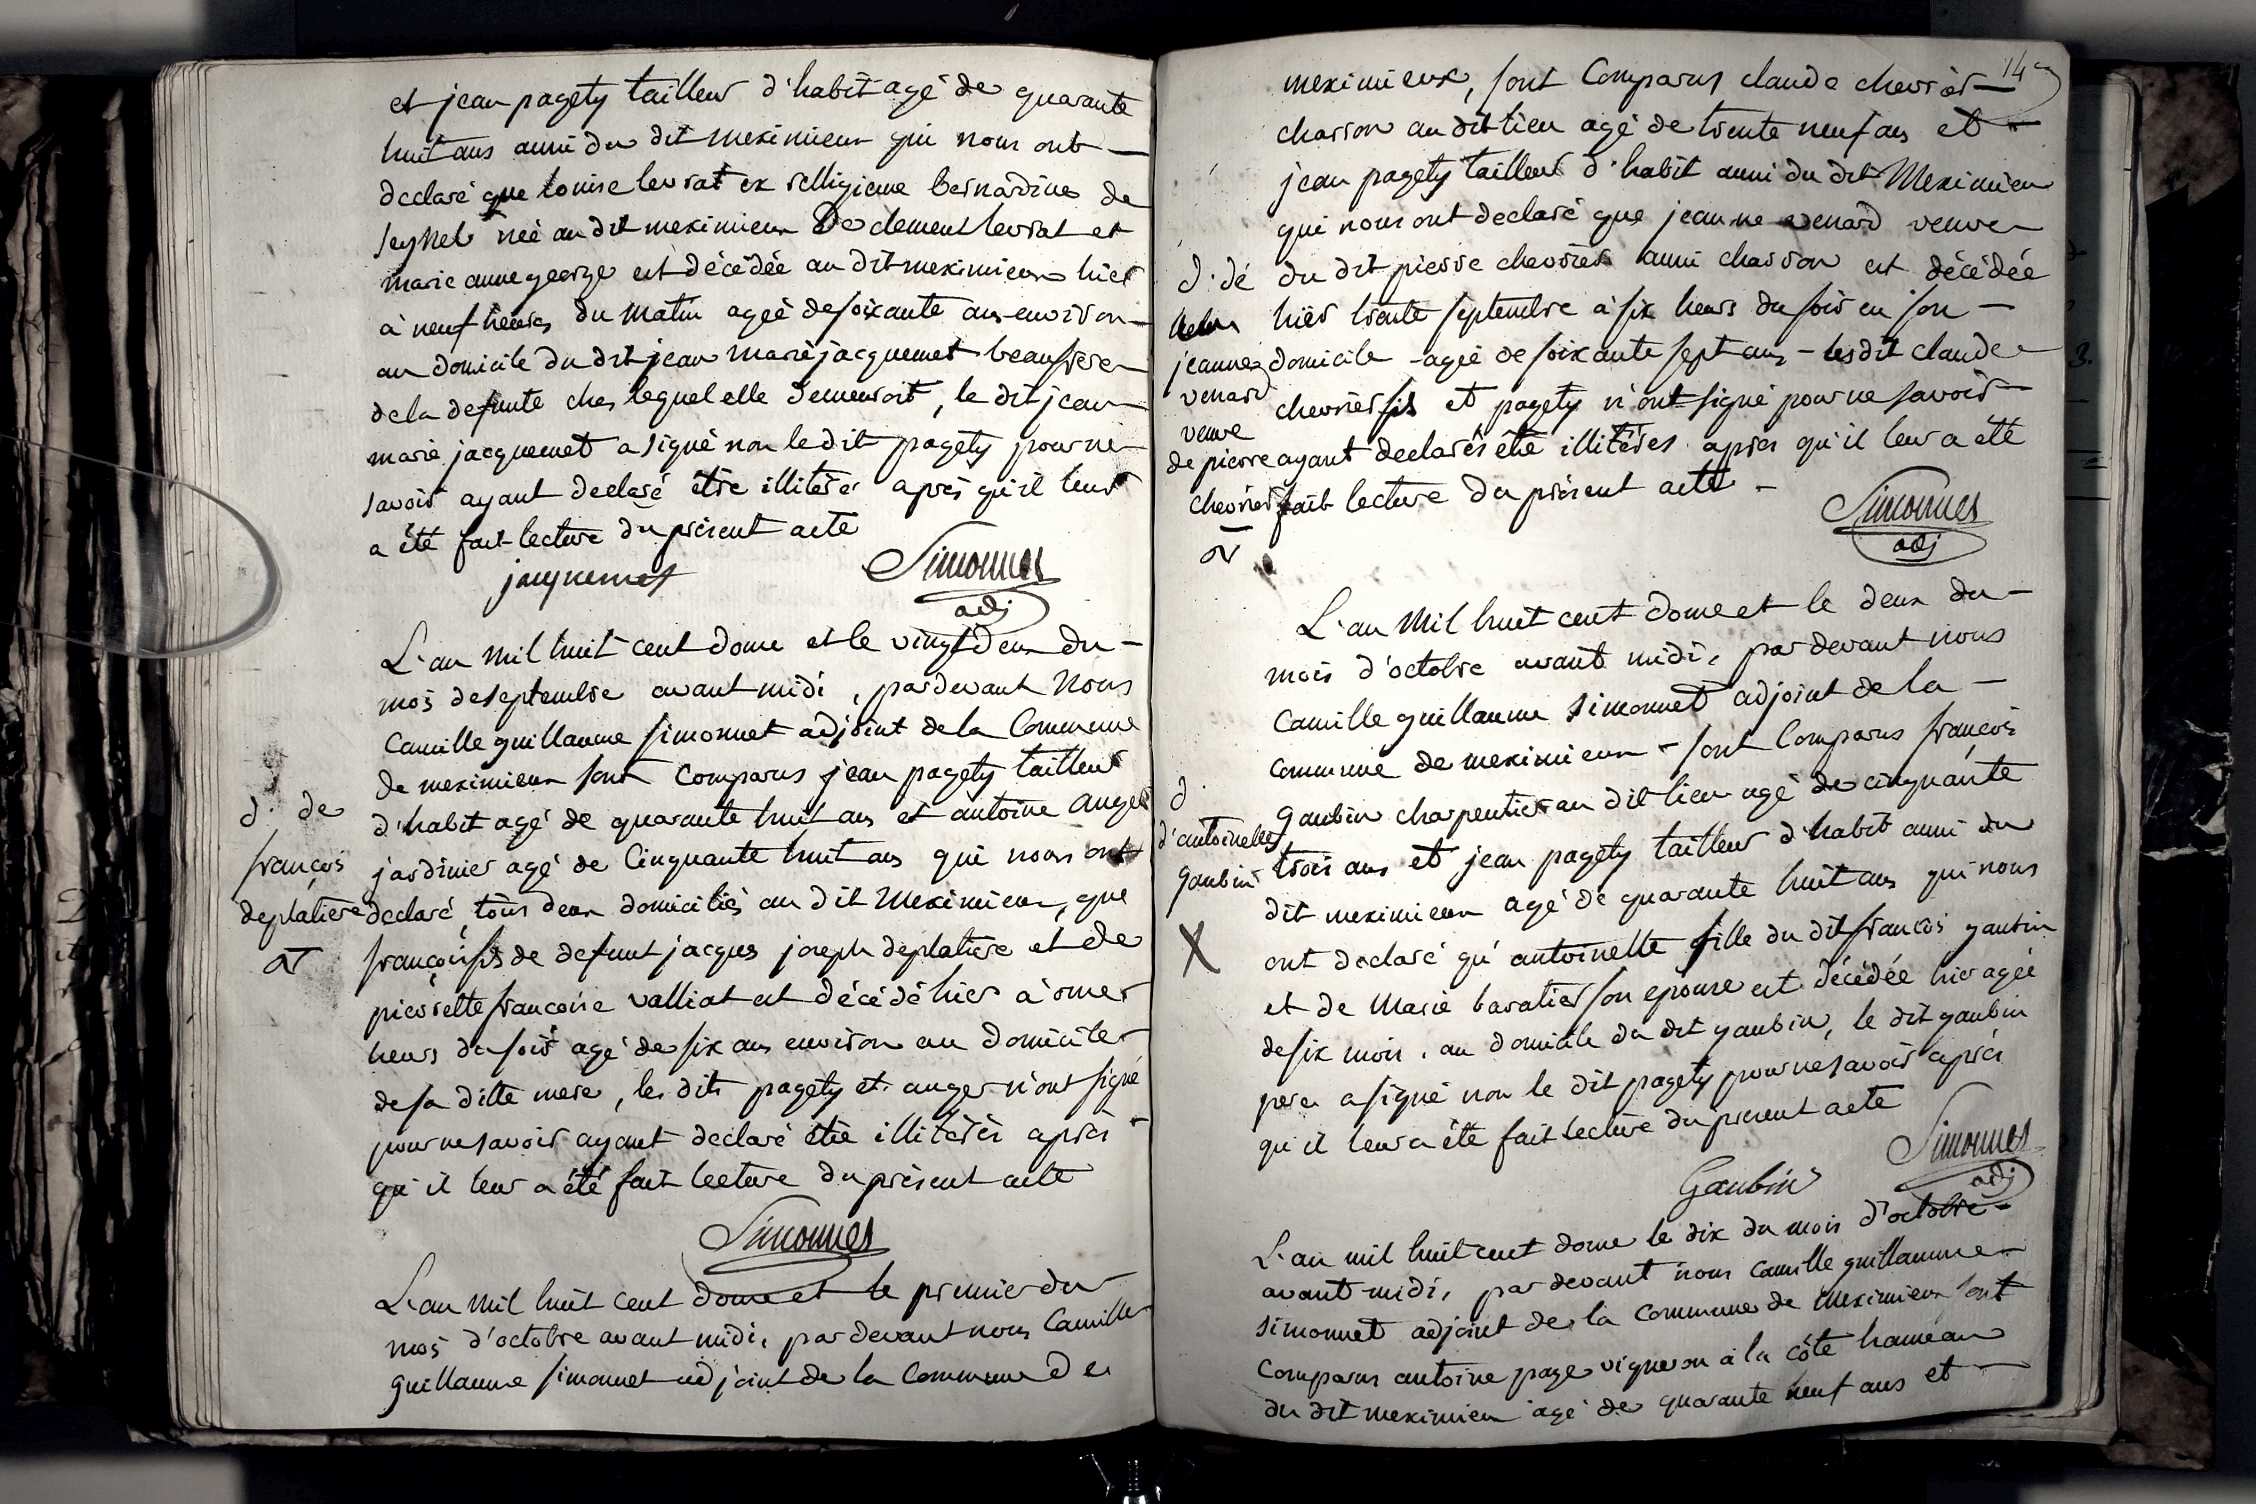 et jean pagety tailleur d'habit agé de quarante
huit ans aussi du dit meximieux qui nous ont
declaré que louise levrat ex relligieuse bernardine de
seyssel née au dit meximieux de clement levrat et
marie anne george est décédée au dit meximieux hier
à neuf heures du matin agée de soixante ans environ
au domicile du dit jean marie jacquemet beaufrere
de la defunte ches lequel elle demeuroit, le dit jean
marie jacquemet a signé non le dit pagety pour ne
savoir ayant declaré être illitéré après qu'il leur
a été fait lecture du présent acte
jacquemet Simonnet
adj
L'an mil huit cent douze et le vingt deux du
mois de septembre avant midi, par devant nous
Camille guillaume simonnet adjoint de la Commune
de meximieux sont comparus jean pagety tailleur
d'habit agé de quarante huit ans et antoine auger
jardinier agé de Cinquante huit ans qui nous ont
declaré, tous deux domiciliés au dit Meximieux, que
françois fils de defunt jacques joseph deplatiere et de
pierrette francoise valliat est décédé hier à onze
heurs du soir agé de six ans environ au domicile
de sa ditte mere, les dits pagety et auger n'ont signé
pour ne savoir ayant declaré être illitérés après
qu'il leur a été fait lecture du présent acte
Simonnet
L'an mil huit cent douze et le premier du
mois d'octobre avant midi, par devant nous Camille
guillaume simonnet adjoint de la Commune de
d. de
françois
deplatiere
14
meximieux, sont Comparus claude chevrier
charron au dit lieu agé de trente neuf ans et
jean pagety tailleur d'habit aussi du dit Meximieux
qui nous ont declaré que jeanne venard veuve
du dit pierre chevrier aussi charron est décédée
hier trente septembre à six heurs du soir en son
domicile agée de soixante sept ans - les dit claude
chevrier fils et pagety n'ont signé pour ne savoir
ayant declarés être illitérés après qu'il leur a été
fait lecture du présent acte
Simonnet
adj
d. de
jeanne
venard
veuve
de pierre
chevrier
L'an Mil huit cent douze et le deux du
mois d'octobre avant midi, par devant nous
Camille guillaume simonnet adjoint de la
commune de meximieux - sont Comparus françois
gaubin charpentier au dit lieu agé de cinquante
trois ans et jean pagety tailleur d'habit aussi du
dit meximieux agé de quarante huit ans qui nous
ont declaré qu'antoinette fille du dit francois gaubin
et de Marie baratier son epouse est décédée hier agée
de six mois, au domicile du dit gaubin, le dit gaubin
pere a signé non le dit pagety pour ne savoir après
qu'il leur a été fait lecture du present acte
Gaubin Simonnet
adj
d.
d'antoinette
gaubin
X
L'an mil huit cent douze le dix du mois d'octobre
avant midi, par devant nous Camille guillaume
simonnet adjoint de la Commune de meximieux sont
Comparus antoine page vigneron à la côte hameau
du dit meximieux agé de quarante neuf ans et